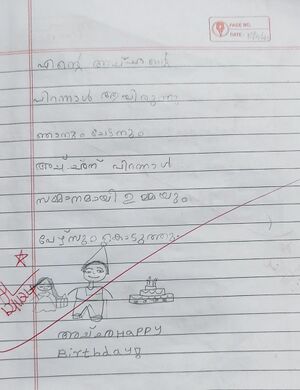 PAGE NO.
DATE:
എന്റെ അച്ഛന്റെ
പിറന്നാൾ ആയിരുന്നു
ഞാനും ചേട്ടനും
അച്ഛന് പിറന്നാൾ
സമ്മാനമായി ഉമ്മയും
പേഴ്സും കൊടുത്തു.
അച്ഛ HAPPY
Birthday